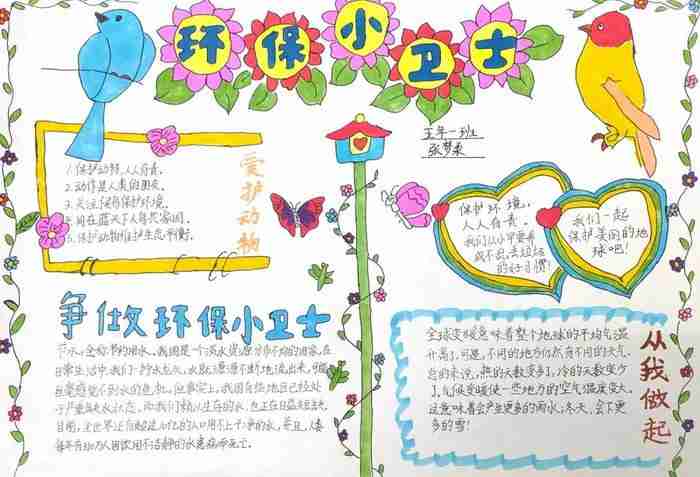 环保小卫士
五年一班
张梦柔
1.保护动物,人人有责。
2.动作是人类的朋友。
3.关注候鸟保护环境。
4.同在蓝天下人鸟共家园。
5.保护动物维护生态平衡。
爱护动物
保护环境,
人人有责。
我们从小中要养
成不乱丢垃圾
的好习惯!
我们一起
保护美丽的地
球吧!
争做环保小卫士
节水,全称节约用水。我国是一个淡水资源分布不均的国家,在
日常生活中,我们一拧水龙头,水就源源不断地流出来,可能
丝毫感觉不到水的危机。但事实上,我们赖以生存的水,也正在日益
目前,全世界还有超过
每年有300万人因饮用不洁静的水患病而死亡。
全球变暖意味着整个地球的平均气温
升高了。可是,不同的地方仍然有不同的天气。
总的来说,热的天数变多了,冷的天数变少
了。气候变暖使一些地方的空气湿度变大。
这意味着会产生更多的雨水,冬天,会下更
多的雪!
从我做起